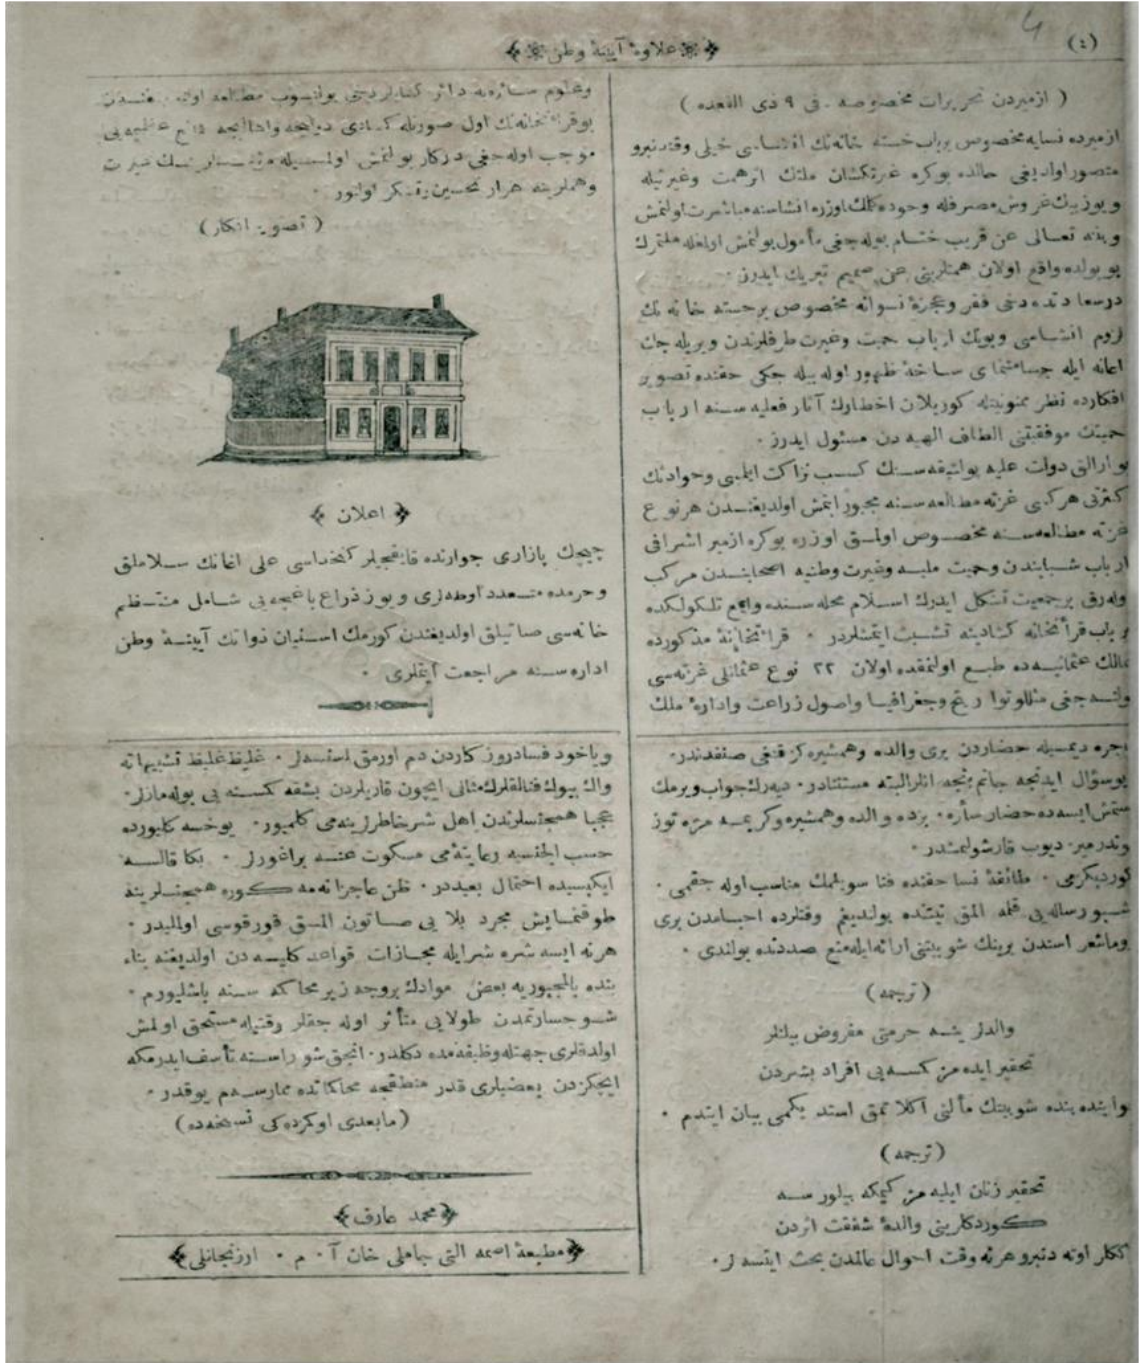 (٤)
علاوهٔ آیینهٔ وطن
( ازمیردن تحریرات مخصوصه . فی ٩ ذی القعده )
ازمیرده نسایه مخصوص برباب خسته خانه‌نك انشاسی خیلی وقتدنبرو
متصور اولدیغی حالده بوكره غیرتكشان ملتك اثر همت وغیرتیله
ویوز بیك غروش مصرفله وجوده كلك اوزره انشاسنه مباشرت اولنمش
وبمنه تعالی عن قریب ختام بوله‌جغی مأمول بولنمش اولغله ملتمزك
بو یولده واقع اولان همتلرینی عن صمیم تبریك ایدرز ٠
درسعادتده دخی فقر وعجزهٔ نسوانه مخصوص برخسته خانه‌نك
لزوم انشاسی وبونك ارباب حمیت وغیرت طرفلرندن ویریله‌جك
اعانه ایله ساحهٔ ظهور اوله بیله جكی حقنده تصویر
افكارده نظر ممنونیتله كوریلان اخطارك آثار فعلیه سنه ارباب
حمیتك موفقیتنی الطاف الهیه دن مسئول ایدرز ٠
بو ارالق دولت علیه پولتیقه سنك كسب نزاكت ایلمسی وحوادثك
كثرتی هركسی غزته مطالعه سنه مجبور ایتمش اولدیغندن هر نوع
غزته مطالعه سنه مخصوص اولمق اوزره بوكره ازمیر اشرافی
ارباب شبابندن وحمیت ملیه وغیرت وطنیه اصحابندن مركب
اوله‌رق برجمعیت تشكل ایدرك اسلام محله سنده واقع تلكولكده
برباب قرائتخانه كشادینه تشبث ایتمشلردر ٠ قرائتخانهٔ مذكورده
ممالك عثمانیه‌ده طبع اولنمقده اولان ٢٢ نوع عثمانلی غزته‌سی
بولنه‌جغی مثللو تواریخ وجغرافیا واصول زراعت وادارهٔ ملك
وعلوم سائره‌یه دائر كتابلر دخی بولنوب مطالعه اولنه‌جغندن
بو قرائتخانه‌نك اول صورتله كشادی
موجب اوله‌جغی دركار بولنمش اولمسیله غیرت
وهمتلرینه هزار تحسین اولنور ٠
( تصویر افكار )
اعلان
چیچك پازاری جوارنده قایقجیلر كتخداسی علی اغانك سلاملق
وحرمده متعدد اوطه‌لری ویوز ذراع باغچه‌یی شامل منتظم
خانه‌سی صاتیلق اولدیغندن كورمك استیان ذواتك آیینهٔ وطن
اداره سنه مراجعت ایتلری ٠
دیمسیله حضاردن بری والده وهمشیره‌كز قنغی صنفدندر ٠
بو سؤال ایدنجه جانم بنجه انلر البته مستثنادر ٠ دیه‌رك جواب ویرمك
ایسه‌ده حضار سائره ٠ بزده والده وهمشیره وكریمه مزه توز
قوندرمیز دیوب قارشولمشدر ٠
كوردیكزمی ٠ طائفهٔ نسا حقنده فنا سویلمك مناسب اوله جقمی ٠
شبو رساله‌یی قلمه المق نیتنده بولندیغم وقتلرده احبامدن بری
استدن برینك شو بیتنی ارائه‌ایله منع صددنده بولندی ٠
( ترجمه )
والدلر ینه حرمتی مفروض بیلنلر
تحقیر ایده‌مز كسه‌یی افراد بشردن
بو اینده بنده شو بیتك مألنی اكلاتمق استدیكمی بیان ایتدم ٠
( ترجمه )
تحقیر زنان ایلیه‌مز كیمكه بیلور سه
كوردكلرینی والدهٔ شفقت اثردن
اوته دنبرو هر نه وقت احوال عالمدن بحث ایتسه لر ٠
ویاخود فسادروزكاردن دم اورمق استسه‌لر ٠ غلیظ غلیظ تشبیهاته
واك بیوك فنالقلرك مثالی ایچون قاریلردن بشقه كسنه یی بوله‌مازلر ٠
عجبا همجنسلرندن اهل شر خاطرلرینه‌می كلمیور ٠ یوخسه كلیورده
حسب الجنسیه رعایتةمی مسكوت عنه براغورلر ٠ بكا قالسه
ایكیسیده احتمال بعیددر ٠ ظن عاجزانه‌مه كوره همجنسلرینه
طوقنمایش مجرد بلا یی صاتون المق قورقوسی اولملیدر ٠
هر نه ایسه شره شرایله مجازات قواعد كلیه دن اولدیغنه بناء
بنده بالمجبوریه بعض موادك بروجه زیر محاكه سنه باشلیورم ٠
شو جسارتمدن طولایی متأثر اوله جقلر رقتیله مستحق اولمش
اولدقلری جهتله وظیفه‌مده دكلدر ٠ انجق شو راسنه تأسف ایدرمكه
ایچكزدن بعضیلری قدر منطقجه محاكاتده ممارسه‌م یوقدر ٠
( مابعدی اوكرده‌كی نسخه‌ده )
محمد عارف
مطبعهٔ اصمه التی جاملی خان آ ٠ م ٠ ارزنجانلی